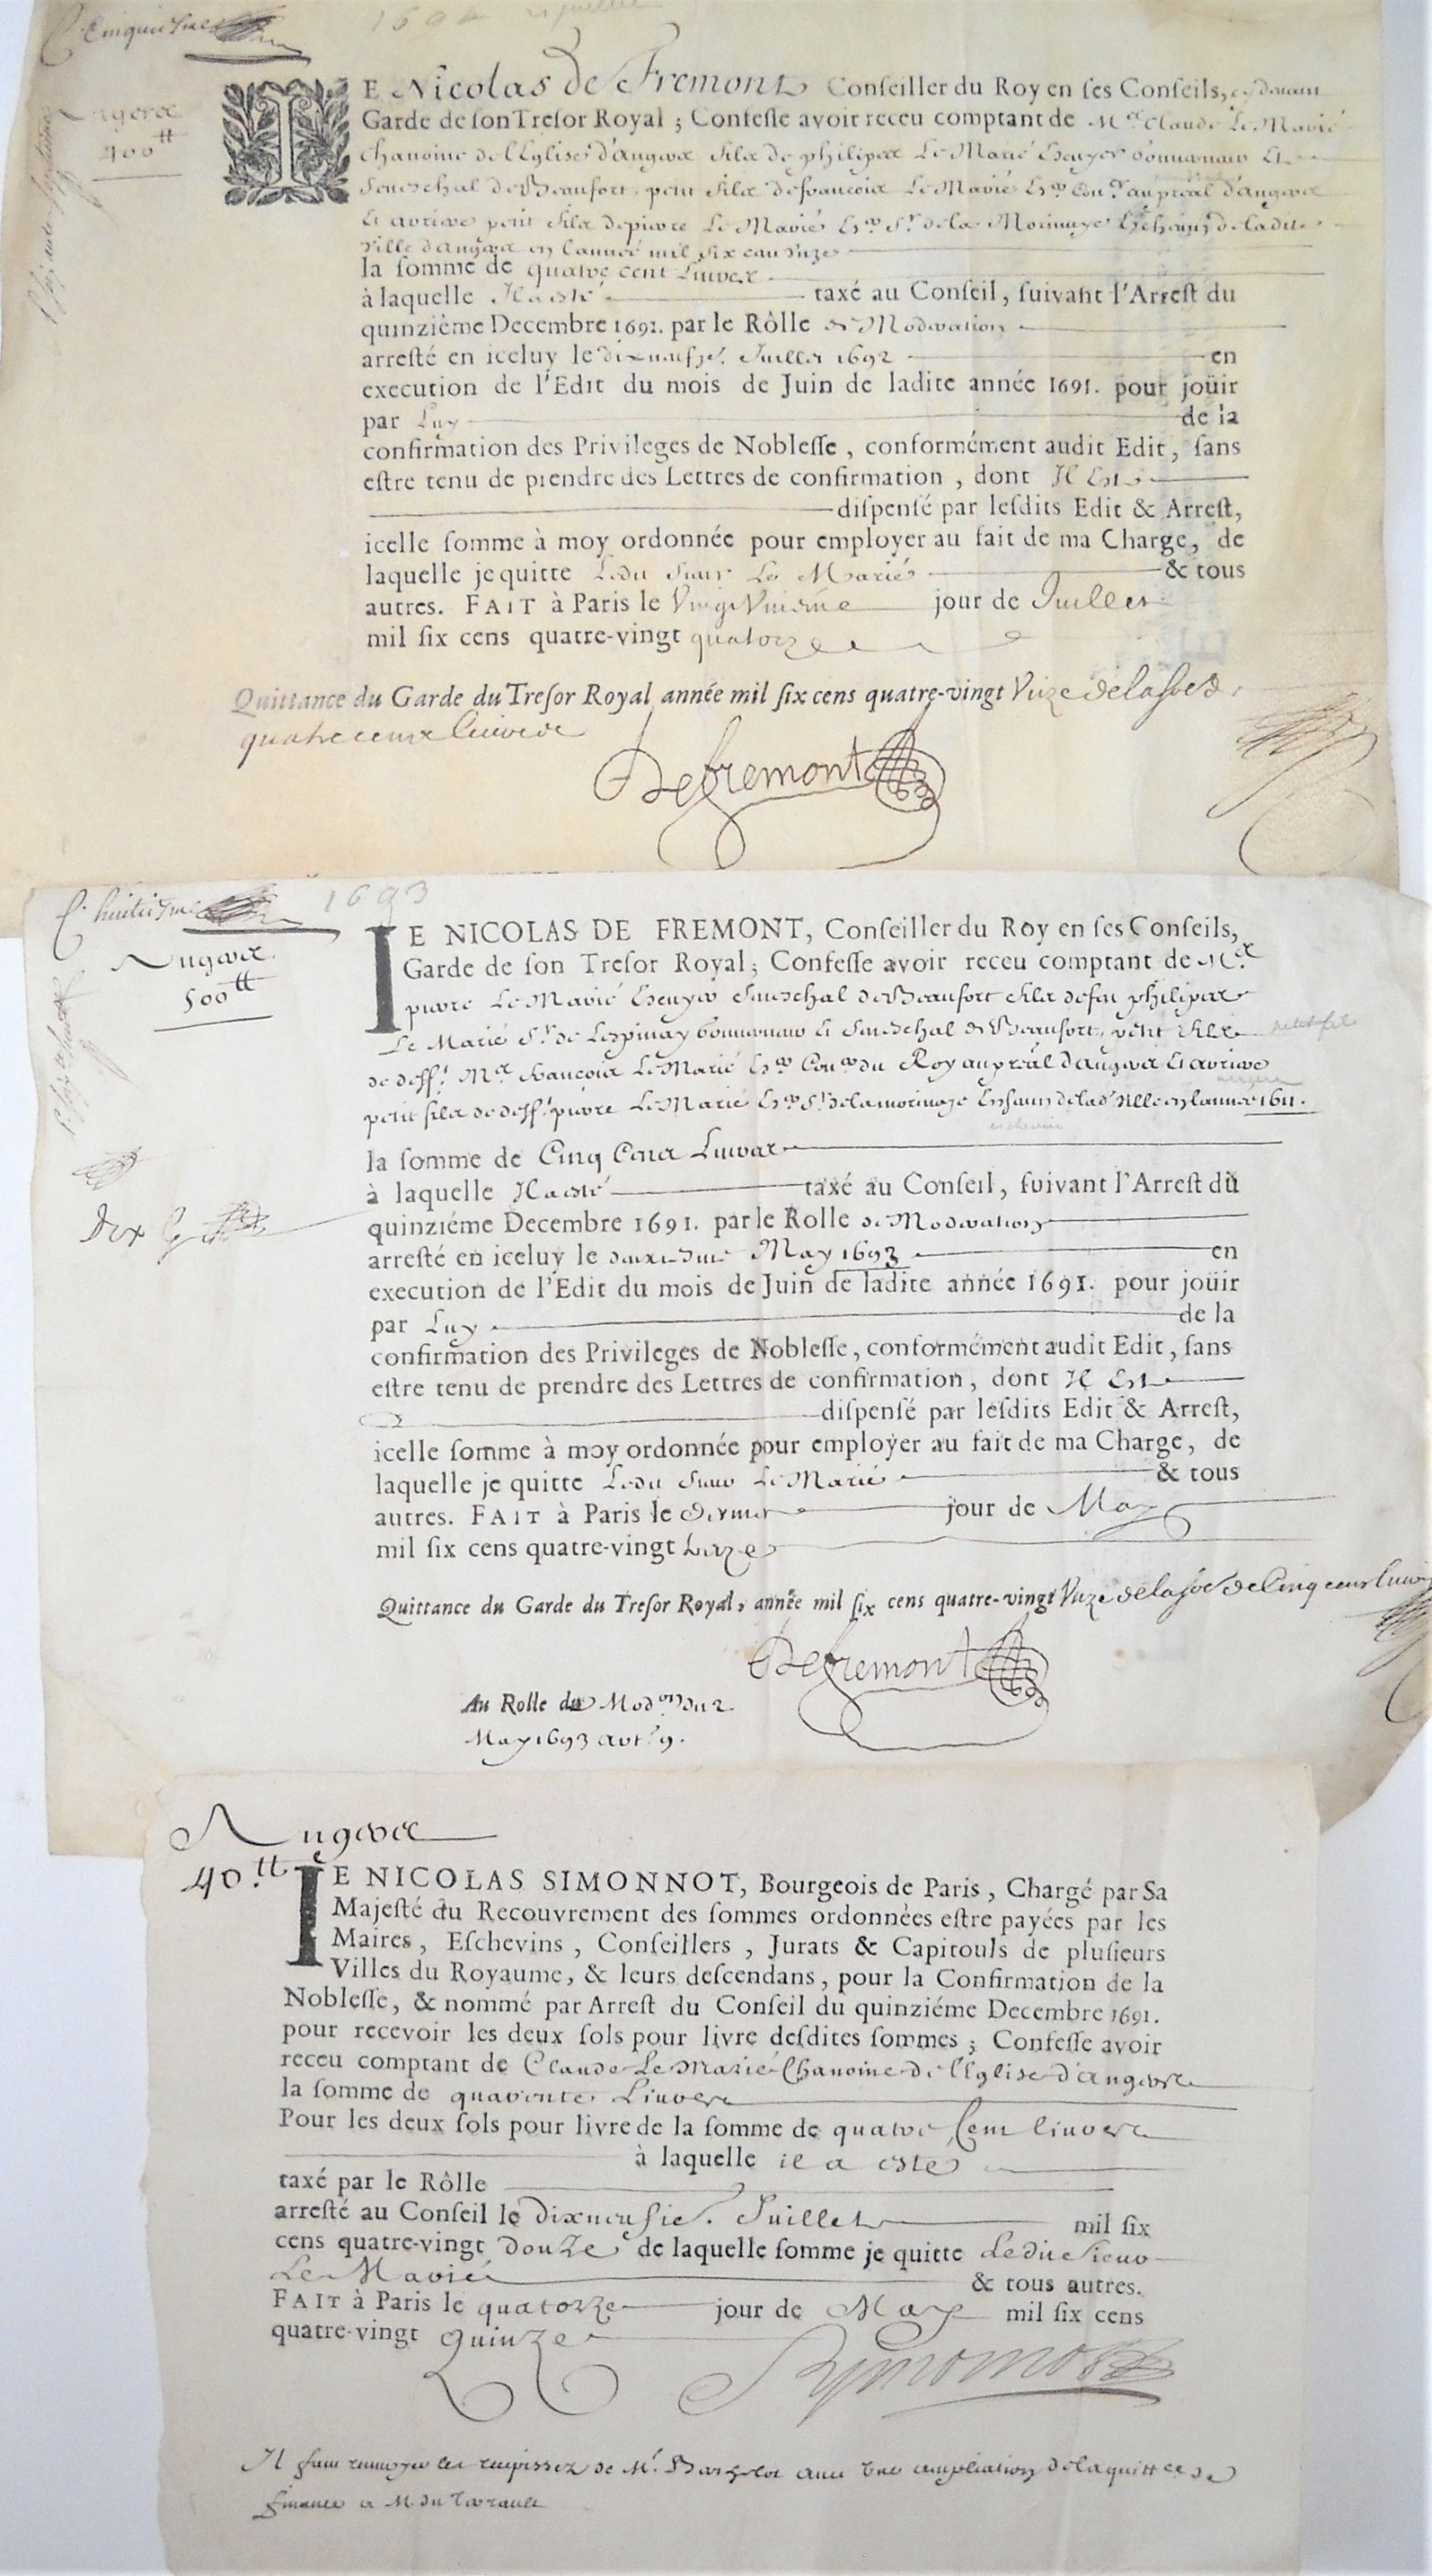 C. Cinquiesme
Angers
400tt
IE Nicolas de Fremont Conseiller du Roy en ses Conseils,
Garde de son Tresor Royal ; Confesse avoir receu comptant de Mre Claude Le Marié
Chanoine de l'Eglise d'Angers fils de philipes Le Marié Escuyer Gouverneur Et
Seneschal de Beaufort, petit fils de francois Le Marié Er Conr au preal d'angers
Et arriere petit fils de pierre Le Marié Er Sr de la Morinaye Eschevin de ladite
Ville d'angers en l'année mil six cens unze
la somme de quatre cent Livres
à laquelle Il a esté taxé au Conseil, suivant l'Arrest du
quinziéme Decembre 1691. par le Rôlle de Moderation
arresté en iceluy le dixneufie. Juillet 1692 en
execution de l'Edit du mois de Juin de ladite année 1691. pour joüir
par Luy de la
confirmation des Privileges de Noblesse, conformément audit Edit, sans
estre tenu de prendre des Lettres de confirmation, dont Il Est
dispensé par lesdits Edit & Arrest,
icelle somme à moy ordonnée pour employer au fait de ma Charge, de
laquelle je quitte Ledit Sieur Le Marié & tous
autres. FAIT à Paris le Vingt jour de Juillet
mil six cens quatre-vingt quatorze
Quittance du Garde du Tresor Royal année mil six cens quatre-vingt Unze de la so.e de
quatre cens livres
Defremont
C. huitiesme
1693
Angers
500tt
IE NICOLAS DE FREMONT, Conseiller du Roy en ses Conseils,
Garde de son Tresor Royal ; Confesse avoir receu comptant de Mre
pierre Le Marié Escuyer Seneschal de Beaufort fils de feu philipes
Le Marié Sr de Lespinay Gouverneur Et Seneschal de Beaufort, petit fils
de deff.t Mre francois Le Marié Er Conr du Roy au preal d'angers Et arriere
petit fils de deff.t pierre Le Marié Er Sr de la morinaye Eschevin de lad. Ville en l'année 1611.
la somme de Cinq Cens Livres
à laquelle Il a esté taxé au Conseil, suivant l'Arrest du
quinziéme Decembre 1691. par le Rolle de Moderation
arresté en iceluy le deuxiesme May 1693 en
execution de l'Edit du mois de Juin de ladite année 1691. pour joüir
par Luy de la
confirmation des Privileges de Noblesse, conformément audit Edit, sans
estre tenu de prendre des Lettres de confirmation, dont Il Est
dispensé par lesdits Edit & Arrest,
icelle somme à moy ordonnée pour employer au fait de ma Charge, de
laquelle je quitte Ledit Sieur Le Marié & tous
autres. FAIT à Paris le dernier jour de May
mil six cens quatre-vingt
Quittance du Garde du Tresor Royal, année mil six cens quatre-vingt Unze de la so.e de Cinq cens livres
Defremont
Au Rolle de Mod.on du 2
May 1693 art. 9.
Angers
40.tt
IE NICOLAS SIMONNOT, Bourgeois de Paris, Chargé par Sa
Majesté du Recouvrement des sommes ordonnées estre payées par les
Maires, Eschevins, Conseillers, Jurats & Capitouls de plusieurs
Villes du Royaume, & leurs descendans, pour la Confirmation de la
Noblesse, & nommé par Arrest du Conseil du quinziéme Decembre 1691.
pour recevoir les deux sols pour livre desdites sommes ; Confesse avoir
receu comptant de Claude Le Marié Chanoine de l'Eglise d'angers
la somme de quarente Livres
Pour les deux sols pour livre de la somme de quatre Cent livres
à laquelle il a esté
taxé par le Rôlle
arresté au Conseil le dixneufie. Juillet mil six
cens quatre-vingt douze de laquelle somme je quitte Ledit Sieur
Le Marié & tous autres.
FAIT à Paris le quatorze jour de May mil six cens
quatre-vingt Quinze
Symonnot
Il faut les recepissez de Mr. avec une ampliation de la quittce de
finance a M. du